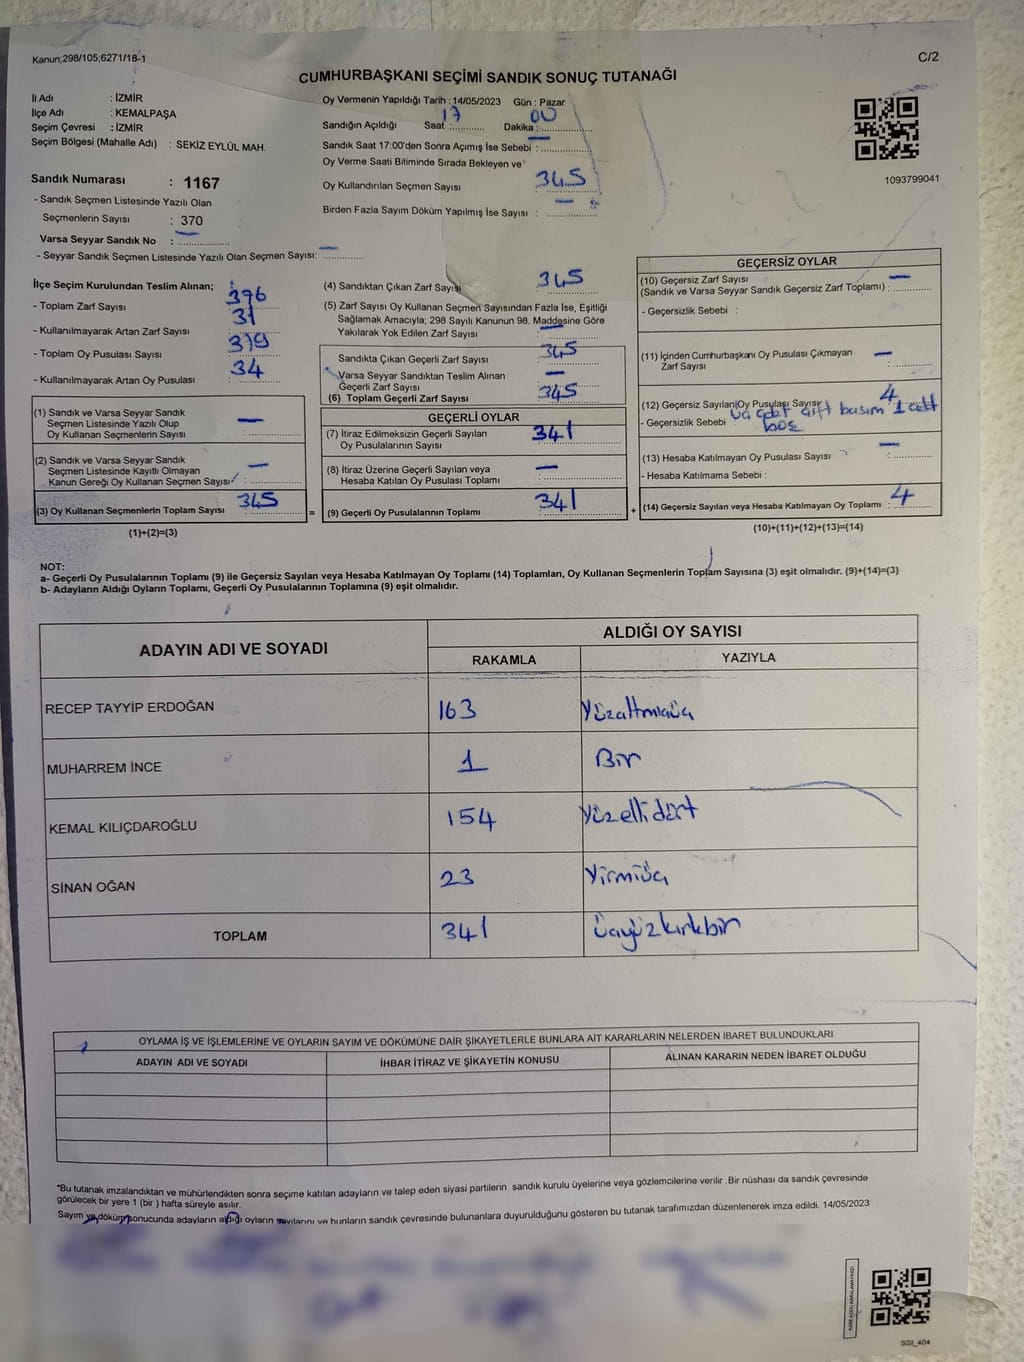 Kanun;298/105;6271/18-1
C/2
CUMHURBAŞKANI SEÇİMİ SANDIK SONUÇ TUTANAĞI
İl Adı : İZMİR
İlçe Adı : KEMALPAŞA
Seçim Çevresi : İZMİR
Seçim Bölgesi (Mahalle Adı) : SEKİZ EYLÜL MAH.
Sandık Numarası : 1167
- Sandık Seçmen Listesinde Yazılı Olan
Seçmenlerin Sayısı : 370
Varsa Seyyar Sandık No : —
- Seyyar Sandık Seçmen Listesinde Yazılı Olan Seçmen Sayısı: —
Oy Vermenin Yapıldığı Tarih : 14/05/2023 Gün : Pazar
Sandığın Açıldığı Saat : 17 Dakika : 00
Sandık Saat 17:00'den Sonra Açımış İse Sebebi : —
Oy Verme Saati Bitiminde Sırada Bekleyen ve
Oy Kullandırılan Seçmen Sayısı 345
Birden Fazla Sayım Döküm Yapılmış İse Sayısı : —
1093799041
İlçe Seçim Kurulundan Teslim Alınan;
- Toplam Zarf Sayısı : 376
- Kullanılmayarak Artan Zarf Sayısı : 31
- Toplam Oy Pusulası Sayısı : 379
- Kullanılmayarak Artan Oy Pusulası : 34
(1) Sandık ve Varsa Seyyar Sandık
Seçmen Listesinde Yazılı Olup
Oy Kullanan Seçmenlerin Sayısı : —
(2) Sandık ve Varsa Seyyar Sandık
Seçmen Listesinde Kayıtlı Olmayan
Kanun Gereği Oy Kullanan Seçmen Sayısı : —
(3) Oy Kullanan Seçmenlerin Toplam Sayısı 345
(1)+(2)=(3)
=
(4) Sandıktan Çıkan Zarf Sayısı 345
(5) Zarf Sayısı Oy Kullanan Seçmen Sayısından Fazla İse, Eşitliği
Sağlamak Amacıyla; 298 Sayılı Kanunun 98. Maddesine Göre
Yakılarak Yok Edilen Zarf Sayısı —
Sandıkta Çıkan Geçerli Zarf Sayısı 345
Varsa Seyyar Sandıktan Teslim Alınan
Geçerli Zarf Sayısı —
(6) Toplam Geçerli Zarf Sayısı 345
GEÇERLİ OYLAR
(7) İtiraz Edilmeksizin Geçerli Sayılan
Oy Pusulalarının Sayısı 341
(8) İtiraz Üzerine Geçerli Sayılan veya
Hesaba Katılan Oy Pusulası Toplamı —
(9) Geçerli Oy Pusulalarının Toplamı 341
+
GEÇERSİZ OYLAR
(10) Geçersiz Zarf Sayısı
(Sandık ve Varsa Seyyar Sandık Geçersiz Zarf Toplamı) : —
- Geçersizlik Sebebi :
(11) İçinden Cumhurbaşkanı Oy Pusulası Çıkmayan
Zarf Sayısı —
(12) Geçersiz Sayılan Oy Pusulası Sayısı 4
- Geçersizlik Sebebi üç adet çift basım 1 adet
boş
(13) Hesaba Katılmayan Oy Pusulası Sayısı : —
- Hesaba Katılmama Sebebi :
(14) Geçersiz Sayılan veya Hesaba Katılmayan Oy Toplamı : 4
(10)+(11)+(12)+(13)=(14)
NOT:
a- Geçerli Oy Pusulalarının Toplamı (9) ile Geçersiz Sayılan veya Hesaba Katılmayan Oy Toplamı (14) Toplamları, Oy Kullanan Seçmenlerin Toplam Sayısına (3) eşit olmalıdır. (9)+(14)=(3)
b- Adayların Aldığı Oyların Toplamı, Geçerli Oy Pusulalarının Toplamına (9) eşit olmalıdır.
ADAYIN ADI VE SOYADI
ALDIĞI OY SAYISI
RAKAMLA YAZIYLA
RECEP TAYYİP ERDOĞAN 163 Yüzaltmışüç
MUHARREM İNCE 1 Bir
KEMAL KILIÇDAROĞLU 154 Yüzellidört
SİNAN OĞAN 23 Yirmiüç
TOPLAM 341 Üçyüzkırkbir
OYLAMA İŞ VE İŞLEMLERİNE VE OYLARIN SAYIM VE DÖKÜMÜNE DAİR ŞİKAYETLERLE BUNLARA AİT KARARLARIN NELERDEN İBARET BULUNDUKLARI
ADAYIN ADI VE SOYADI İHBAR İTİRAZ VE ŞİKAYETİN KONUSU ALINAN KARARIN NEDEN İBARET OLDUĞU
*Bu tutanak imzalandıktan ve mühürlendikten sonra seçime katılan adayların ve talep eden siyasi partilerin sandık kurulu üyelerine veya gözlemcilerine verilir .Bir nüshası da sandık çevresinde
görülecek bir yere 1 (bir ) hafta süreyle asılır.
Sayım ve döküm sonucunda adayların aldığı oyların sayılarını ve bunların sandık çevresinde bulunanlara duyurulduğunu gösteren bu tutanak tarafımızdan düzenlenerek imza edildi. 14/05/2023
SSI_404